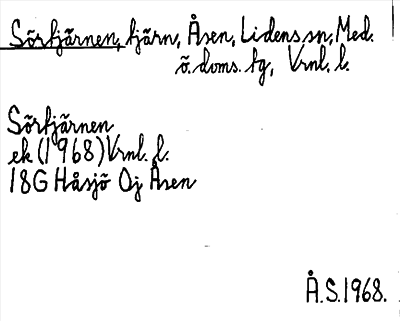 Sörtjärnen, tjärn, Åsen, Lidens sn, Med.
ö. doms. tg, Vrnl. l.
Sörtjärnen
ek (1968) Vrnl. l.
18G Håsjö Oj Åsen
Å.S. 1968.